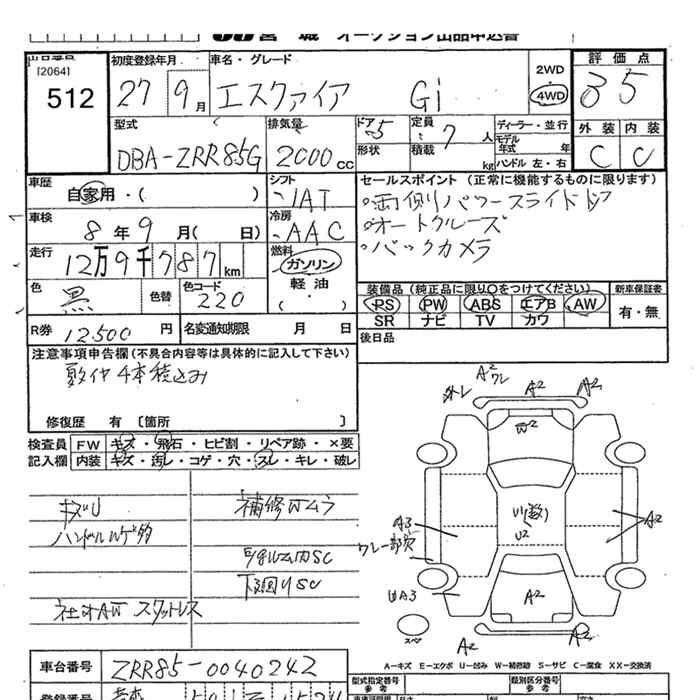 宮城 オークション出品申込書
出品番号
[2064]
512
初度登録年月
27年 9月
車名・グレード
エスクァイア Gi
2WD
・
4WD
評価点
3 5
外装 内装
C C
型式
DBA-ZRR85G
排気量
2000 CC
ドア 5
形状
定員 7 人
積載 kg
ディーラー・並行
モデル年式 年
ハンドル 左・右
車歴
自家用・( )
シフト
IAT
車検
8年 9月( 日)
冷房
AAC
走行
12万9千787km
燃料
ガソリン
軽油
・( )
色
黒
色替
色コード
220
R券 12,500 円
名変通知期限 月 日
セールスポイント (正常に機能するものに限ります)
・両側パワースライドドア
・オートクルーズ
・バックカメラ
装備品 (純正品に限り○をつけてください)
新車保証書
PS PW ABS エアB AW
SR ナビ TV カワ
有・無
後日品
注意事項申告欄 (不具合内容等は具体的に記入して下さい)
4本積込み
修復歴 有 〔箇所 〕
検査員 FW キズ・飛石・ヒビ割・リペア跡・×要
記入欄 内装 キズ・汚レ・コゲ・穴・スレ・キレ・破レ
キズU
ハンドル
補修Wムラ
下廻りSC
社オAW スタッドレス
A2
ワレ
A2
A2
W2
A3
ワレ一部欠
U2
A2
A3
A2
スペア
A2
A2
A-キズ E-エクボ U-凹み W-補修跡 S-サビ C-腐食 XX-交換済
車台番号 ZRR85-0040242
型式指定番号
参考
類別区分番号
参考
登録番号